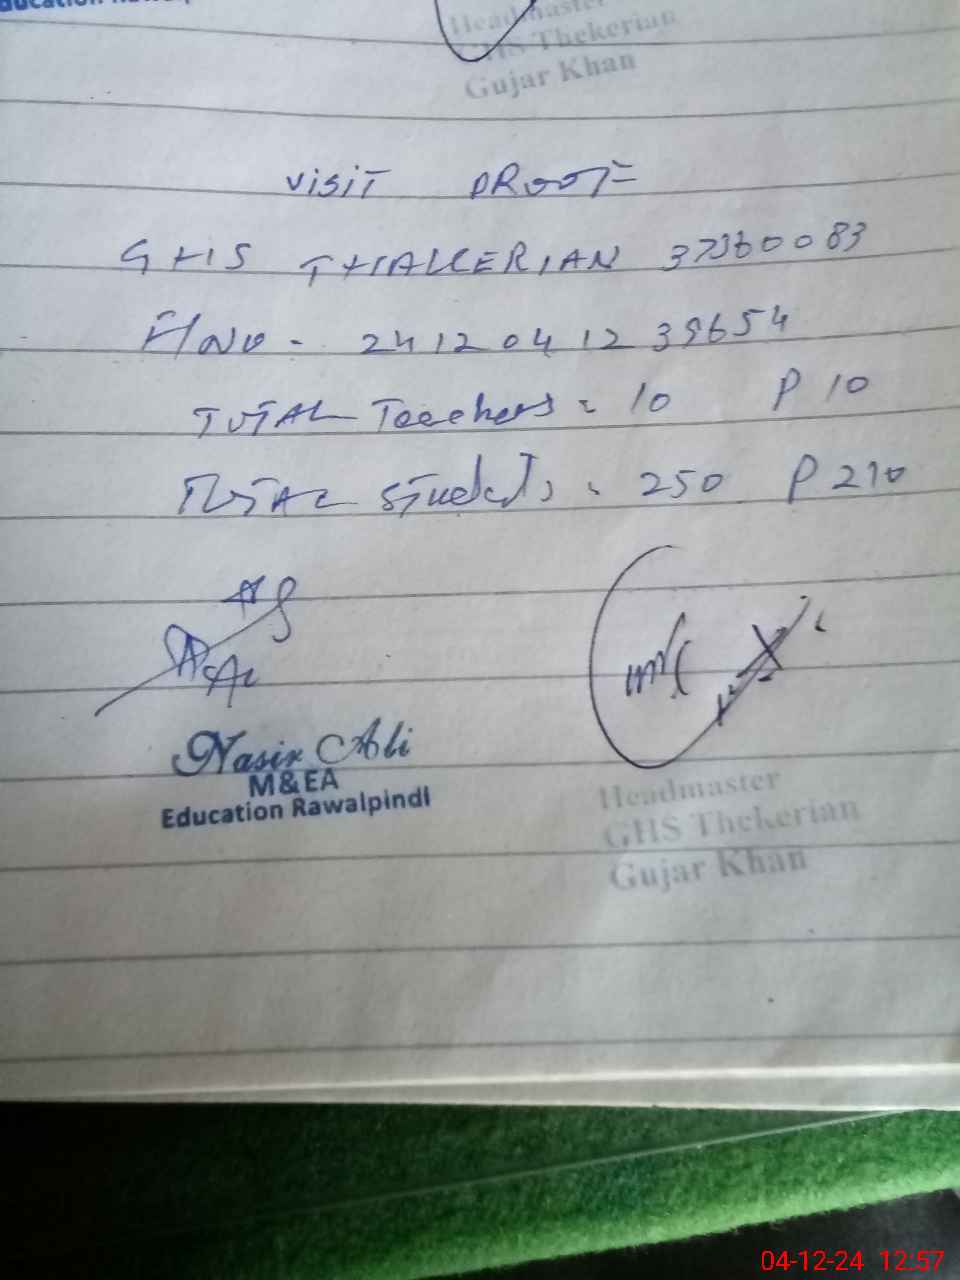 Education Rawalpindi
Headmaster
GHS Thekerian
Gujar Khan
VISIT PROOF
GHS THAKERIAN 37360083
2412041239654
TOTAL Teachers = 10 P 10
TOTAL Students = 250 P 210
Nasir Ali
M&EA
Education Rawalpindi
Headmaster
GHS Thekerian
Gujar Khan
04-12-24 12:57